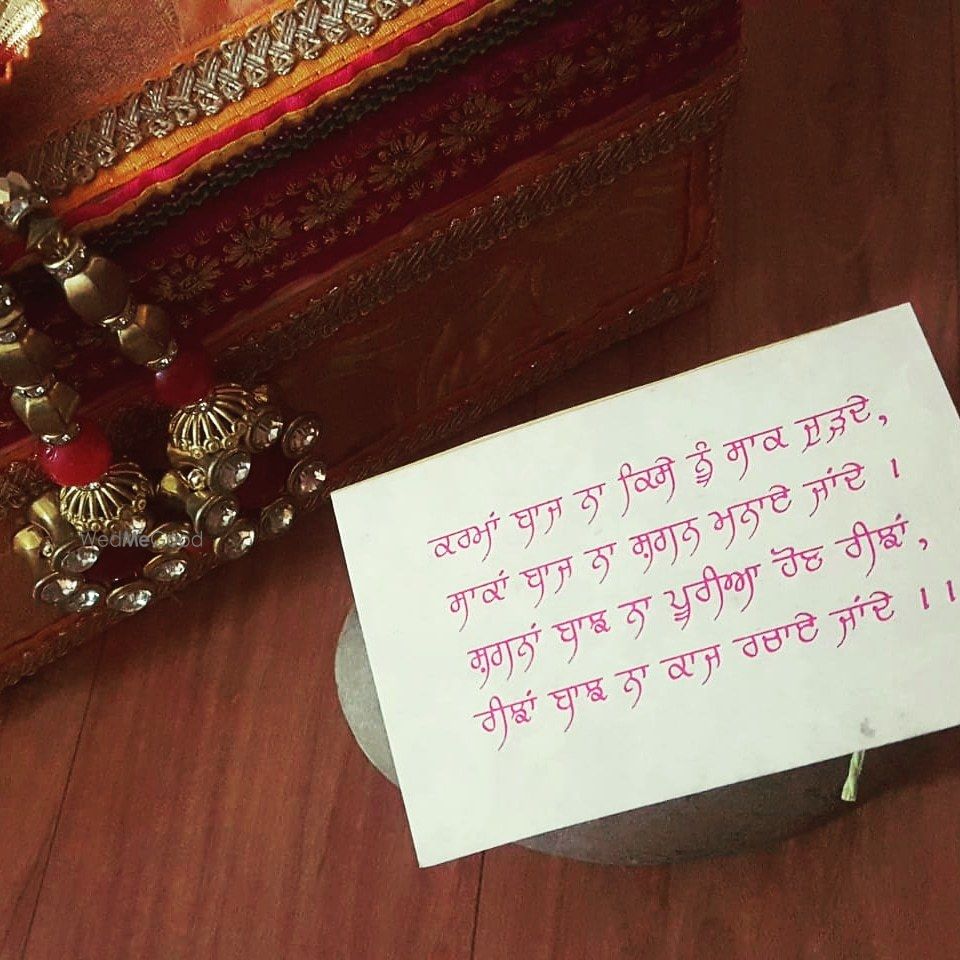 WedMeGood
ਕਰਮਾਂ ਬਾਜ ਨਾ ਕਿਸੇ ਨੂੰ ਸਾਕ ਜੁੜਦੇ,
ਸਾਕਾਂ ਬਾਜ ਨਾ ਸ਼ਗਨ ਮਨਾਏ ਜਾਂਦੇ ।
ਸ਼ਗਨਾਂ ਬਾਝ ਨਾ ਪੂਰੀਆ ਹੋਣ ਰੀਝਾਂ,
ਰੀਝਾਂ ਬਾਝ ਨਾ ਕਾਜ ਰਚਾਏ ਜਾਂਦੇ ।।